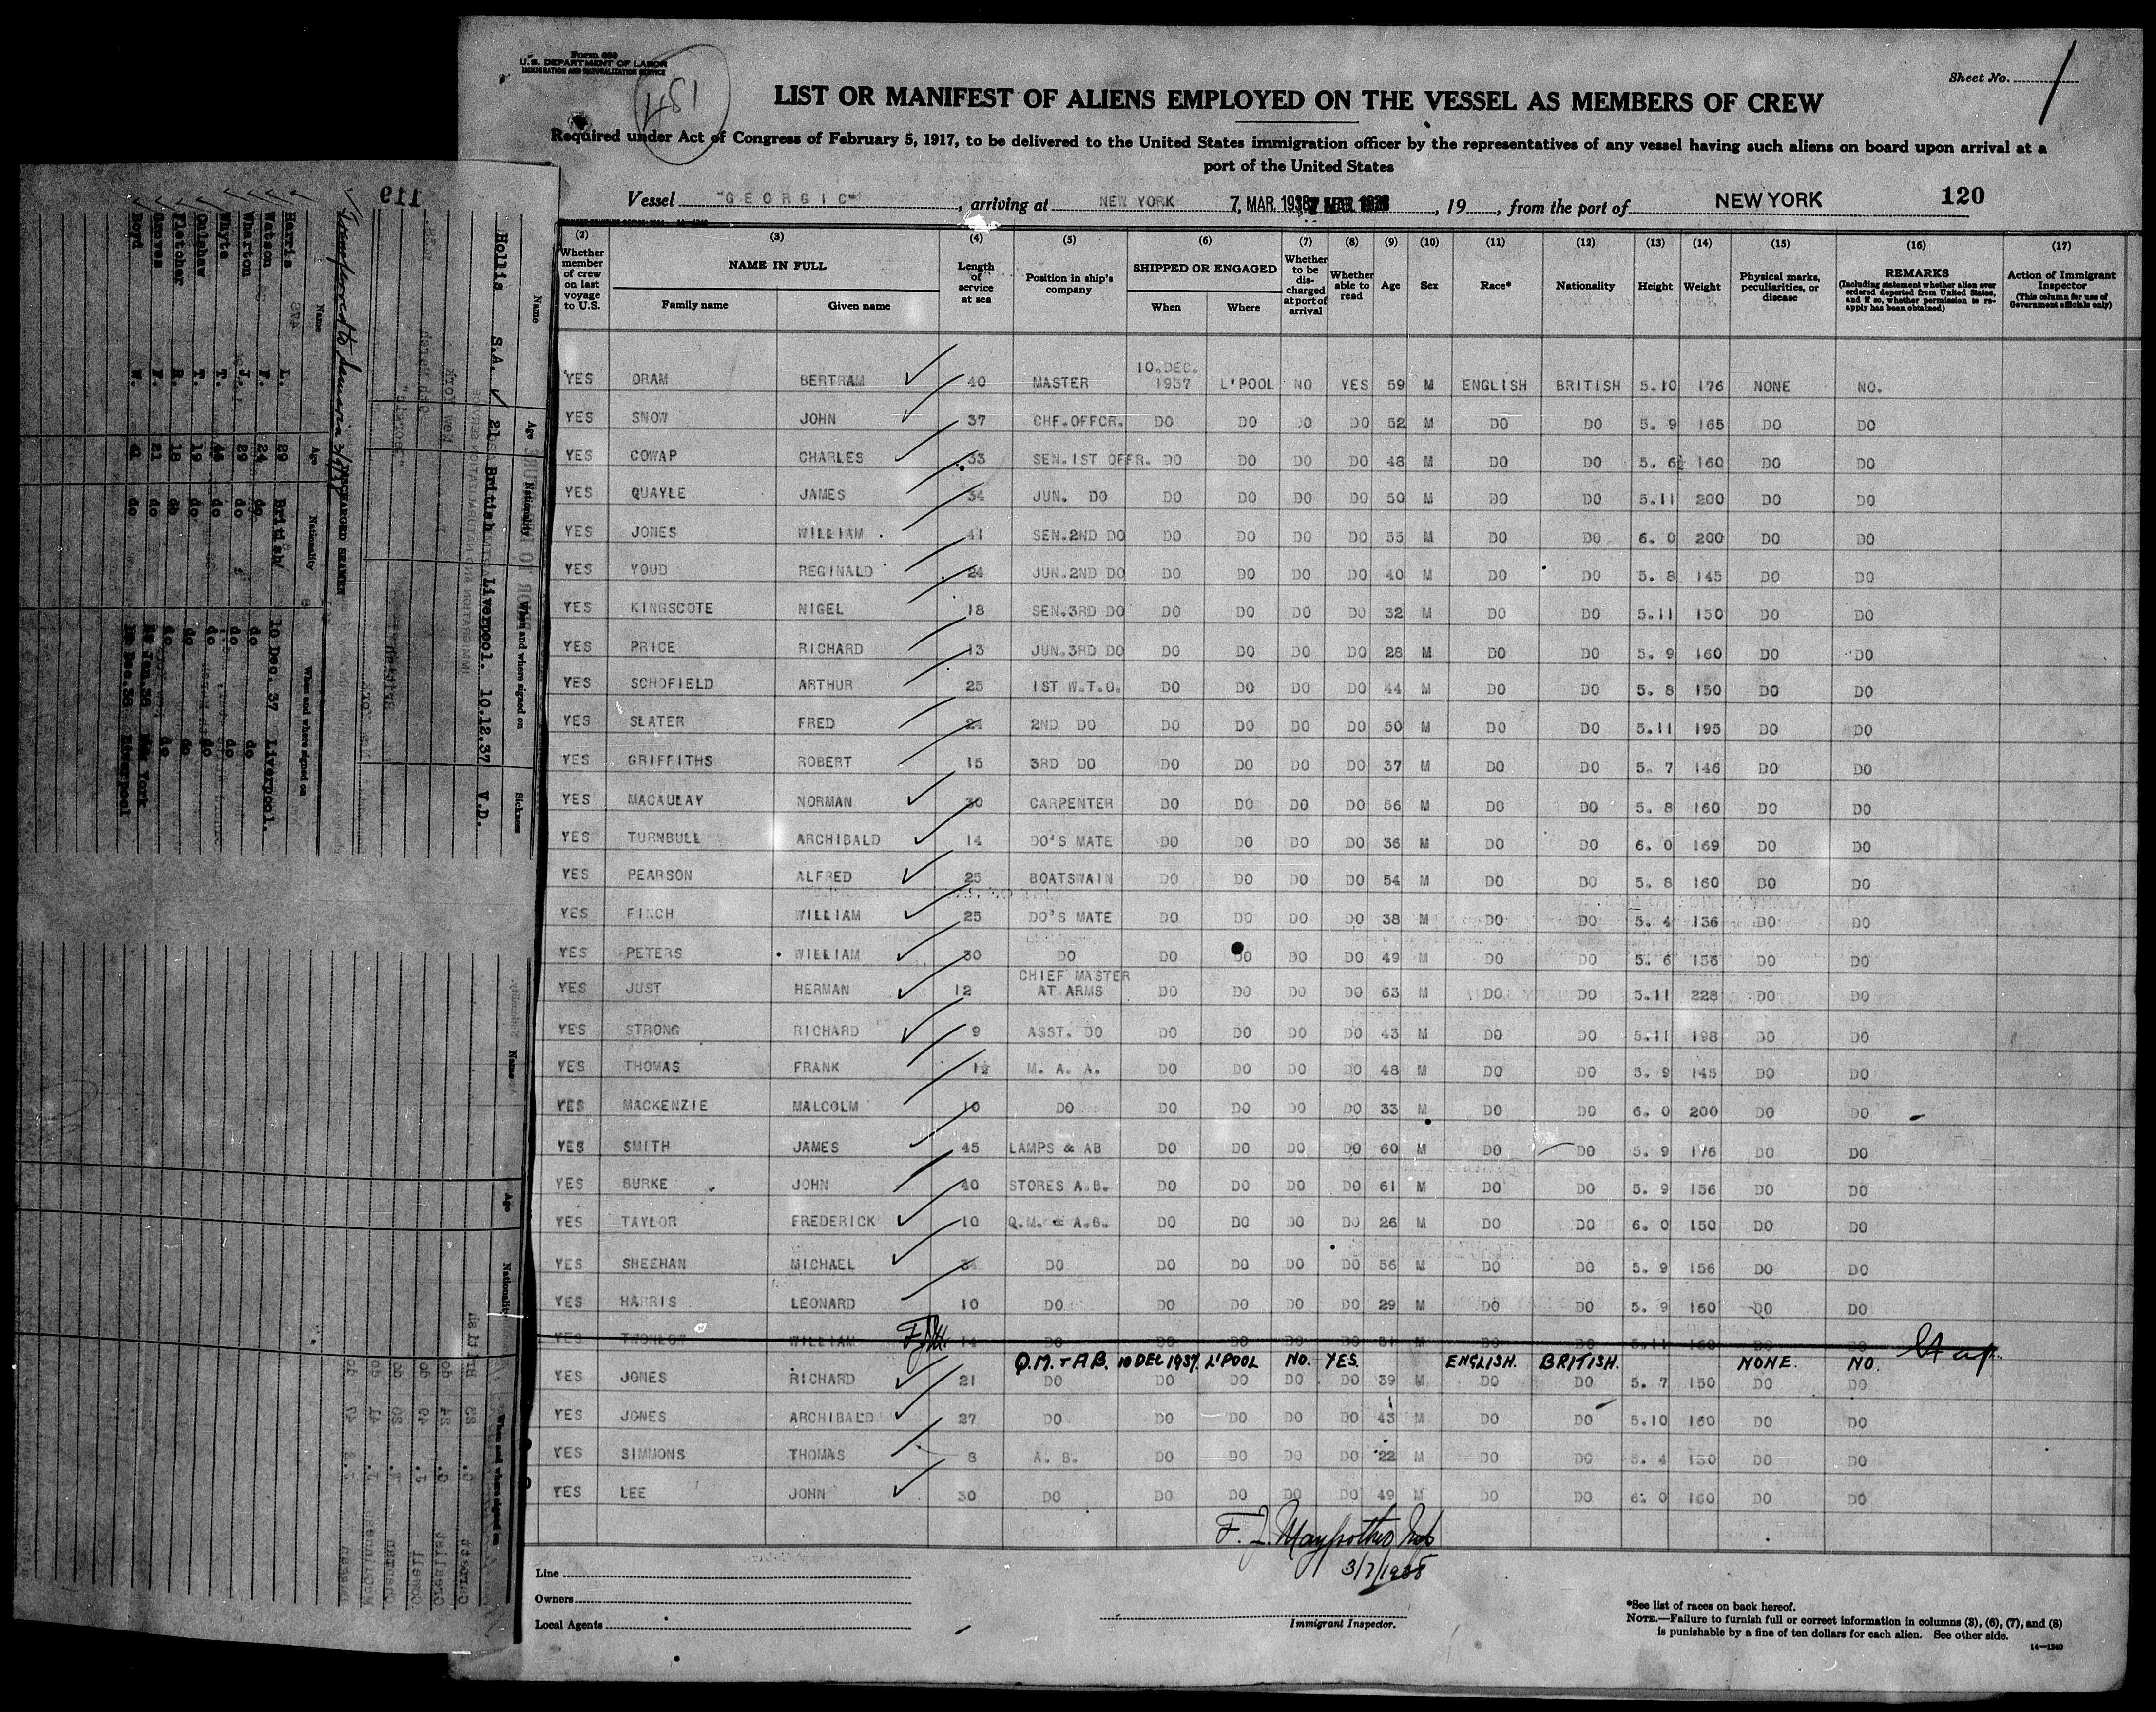 Form 680
U.S. DEPARTMENT OF LABOR
IMMIGRATION AND NATURALIZATION SERVICE
481
Sheet No. 1
LIST OR MANIFEST OF ALIENS EMPLOYED ON THE VESSEL AS MEMBERS OF CREW
Required under Act of Congress of February 5, 1917, to be delivered to the United States immigration officer by the representatives of any vessel having such aliens on board upon arrival at a
port of the United States
Vessel "GEORGIC", arriving at NEW YORK 7, MAR. 1938, 19, from the port of NEW YORK 120
(2) Whether member of crew on last voyage to U.S. (3) NAME IN FULL Family name Given name (4) Length of service at sea (5) Position in ship's company (6) SHIPPED OR ENGAGED When Where (7) Whether to be discharged at port of arrival (8) Whether able to read (9) Age (10) Sex (11) Race* (12) Nationality (13) Height (14) Weight (15) Physical marks, peculiarities, or disease (16) REMARKS (Including statement whether alien ever ordered deported from United States, and if so, whether permission to re-apply has been obtained) (17) Action of Immigrant Inspector (This column for use of Government officials only)
YES DRAM BERTRAM 40 MASTER 10.DEC. 1937 L'POOL NO YES 59 M ENGLISH BRITISH 5.10 176 NONE NO.
YES SNOW JOHN 37 CHF.OFFCR. DO DO DO DO 52 M DO DO 5. 9 165 DO DO
YES COWAP CHARLES 33 SEN.1ST OFFR. DO DO DO DO 48 M DO DO 5. 6½ 160 DO DO
YES QUAYLE JAMES 34 JUN. DO DO DO DO DO 50 M DO DO 5.11 200 DO DO
YES JONES WILLIAM 41 SEN.2ND DO DO DO DO DO 55 M DO DO 6. 0 200 DO DO
YES YOUD REGINALD 24 JUN.2ND DO DO DO DO DO 40 M DO DO 5. 8 145 DO DO
YES KINGSCOTE NIGEL 18 SEN.3RD DO DO DO DO DO 32 M DO DO 5.11 150 DO DO
YES PRICE RICHARD 13 JUN.3RD DO DO DO DO DO 28 M DO DO 5. 9 160 DO DO
YES SCHOFIELD ARTHUR 25 1ST W.T.O. DO DO DO DO 44 M DO DO 5. 8 150 DO DO
YES SLATER FRED 24 2ND DO DO DO DO DO 50 M DO DO 5.11 195 DO DO
YES GRIFFITHS ROBERT 15 3RD DO DO DO DO DO 37 M DO DO 5. 7 146 DO DO
YES MACAULAY NORMAN 30 CARPENTER DO DO DO DO 56 M DO DO 5. 8 160 DO DO
YES TURNBULL ARCHIBALD 14 DO'S MATE DO DO DO DO 36 M DO DO 6. 0 169 DO DO
YES PEARSON ALFRED 25 BOATSWAIN DO DO DO DO 54 M DO DO 5. 8 160 DO DO
YES FINCH WILLIAM 25 DO'S MATE DO DO DO DO 38 M DO DO 5. 4 136 DO DO
YES PETERS WILLIAM 30 DO DO DO DO DO 49 M DO DO 5. 6 156 DO DO
YES JUST HERMAN 12 CHIEF MASTER AT ARMS DO DO DO DO 63 M DO DO 5.11 228 DO DO
YES STRONG RICHARD 9 ASST. DO DO DO DO DO 43 M DO DO 5.11 198 DO DO
YES THOMAS FRANK 1½ M. A. A. DO DO DO DO 48 M DO DO 5. 9 145 DO DO
YES MACKENZIE MALCOLM 10 DO DO DO DO DO 33 M DO DO 6. 0 200 DO DO
YES SMITH JAMES 45 LAMPS & AB DO DO DO DO 60 M DO DO 5. 9 176 DO DO
YES BURKE JOHN 40 STORES A.B. DO DO DO DO 61 M DO DO 5. 9 156 DO DO
YES TAYLOR FREDERICK 10 Q.M. & A.B. DO DO DO DO 26 M DO DO 6. 0 150 DO DO
YES SHEEHAN MICHAEL 34 DO DO DO DO DO 56 M DO DO 5. 9 156 DO DO
YES HARRIS LEONARD 10 DO DO DO DO DO 29 M DO DO 5. 9 160 DO DO
YES WILLIAM 14 DO DO DO DO DO M DO DO 5.11 160 DO DO
Q.M. + A.B. 10 DEC 1937. L'POOL NO. YES. ENGLISH. BRITISH. NONE. NO.
YES JONES RICHARD 21 DO DO DO DO DO 39 M DO DO 5. 7 150 DO DO
YES JONES ARCHIBALD 27 DO DO DO DO DO 43 M DO DO 5.10 160 DO DO
YES SIMMONS THOMAS 8 A. B. DO DO DO DO 22 M DO DO 5. 4 130 DO DO
YES LEE JOHN 30 DO DO DO DO DO 49 M DO DO 6. 0 160 DO DO
3/7/1938
Line
Owners
Local Agents
Immigrant Inspector.
*See list of races on back hereof.
NOTE.—Failure to furnish full or correct information in columns (3), (6), (7), and (8)
is punishable by a fine of ten dollars for each alien. See other side.
14—1240
119
Name Age Nationality When and where signed on Sickness
Hollis S.A. 21 British Liverpool. 10.12.37 V.D.
DISCHARGED SEAMEN
Name Age Nationality When and where signed on
Harris L. 29 British 10 Dec. 37 Liverpool.
Watson F. 24 do do do
Wharton J. 29 do do do
Whyte T. 46 do do do
Culshaw T. 19 do do do
Fletcher R. 18 do do do
Groves F. 21 do New York
Boyd W. 41 do Liverpool
Name Age Nationality When and where signed on